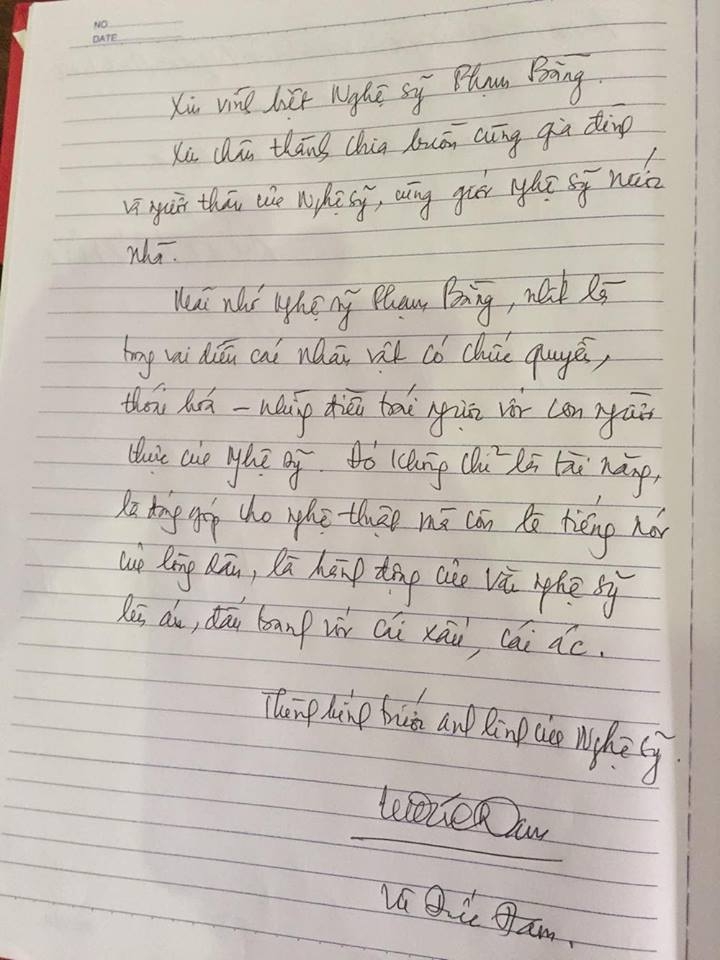 NO.
DATE
Xin vĩnh biệt Nghệ sỹ Phạm Bằng.
Xin chân thành chia buồn cùng gia đình
và người thân của Nghệ sỹ, cùng giới nghệ sỹ nước
nhà.
Mãi nhớ Nghệ sỹ Phạm Bằng, nhất là
trong vai diễn các nhân vật có chức quyền,
thoái hoá - những điều trái ngược với con người
thực của Nghệ sỹ. Đó không chỉ là tài năng,
là đóng góp cho nghệ thuật mà còn là tiếng nói
của lòng dân, là hành động của Văn nghệ sỹ
lên án, đấu tranh với cái xấu, cái ác.
Thành kính trước anh linh của Nghệ sỹ.
Vũ Đức Đam.